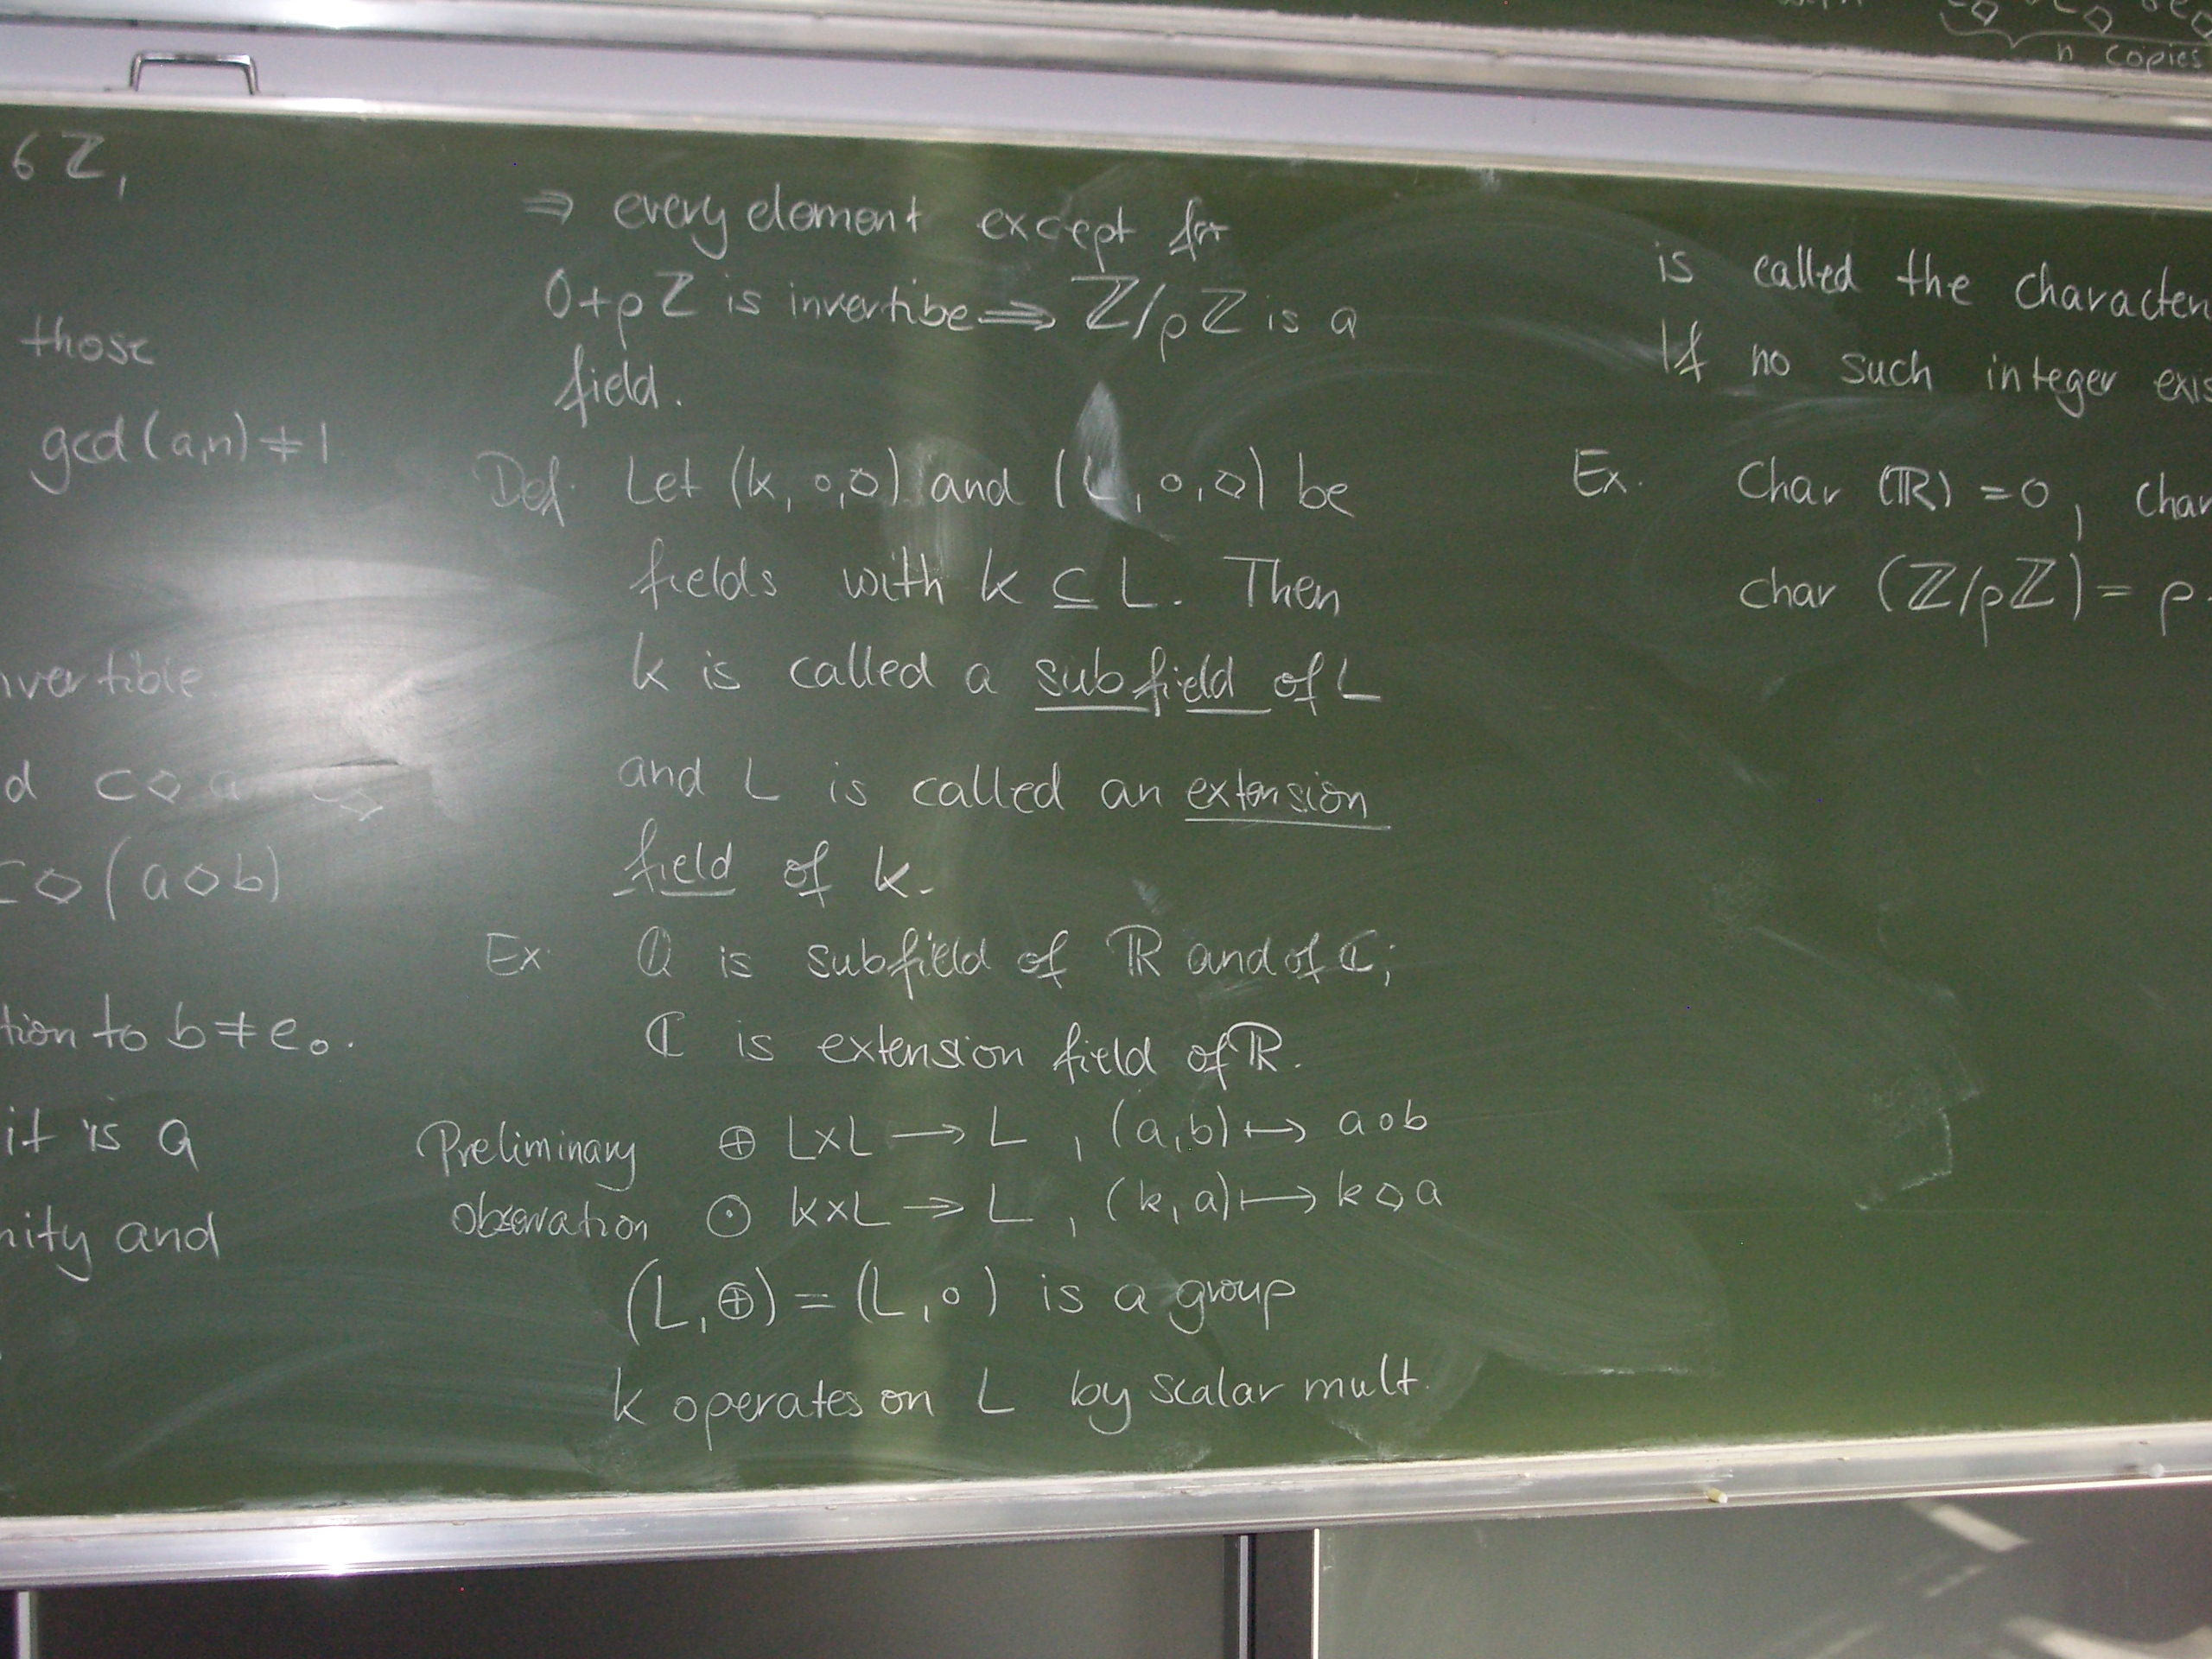 n copies
6ℤ,
those
gcd(a,n)≠1
nvertible
d c◇a
c◇(a◇b)
tion to b≠e∘.
it is a
nity and
⇒ every element except for
0+pℤ is invertibe ⇒ ℤ/pℤ is a
field.
Def. Let (k, ∘,◇) and (L, ∘,◇) be
fields with k ⊆ L. Then
k is called a subfield of L
and L is called an extension
field of k.
Ex. ℚ is subfield of ℝ and of ℂ;
ℂ is extension field of ℝ.
Preliminary ⊕ L×L → L , (a,b) ↦ a∘b
observation ⊙ k×L → L , (k,a) ↦ k◇a
(L,⊕) = (L,∘) is a group
k operates on L by scalar mult.
is called the character
If no such integer exis
Ex. Char (ℝ) = 0, char
char (ℤ/pℤ) = p.